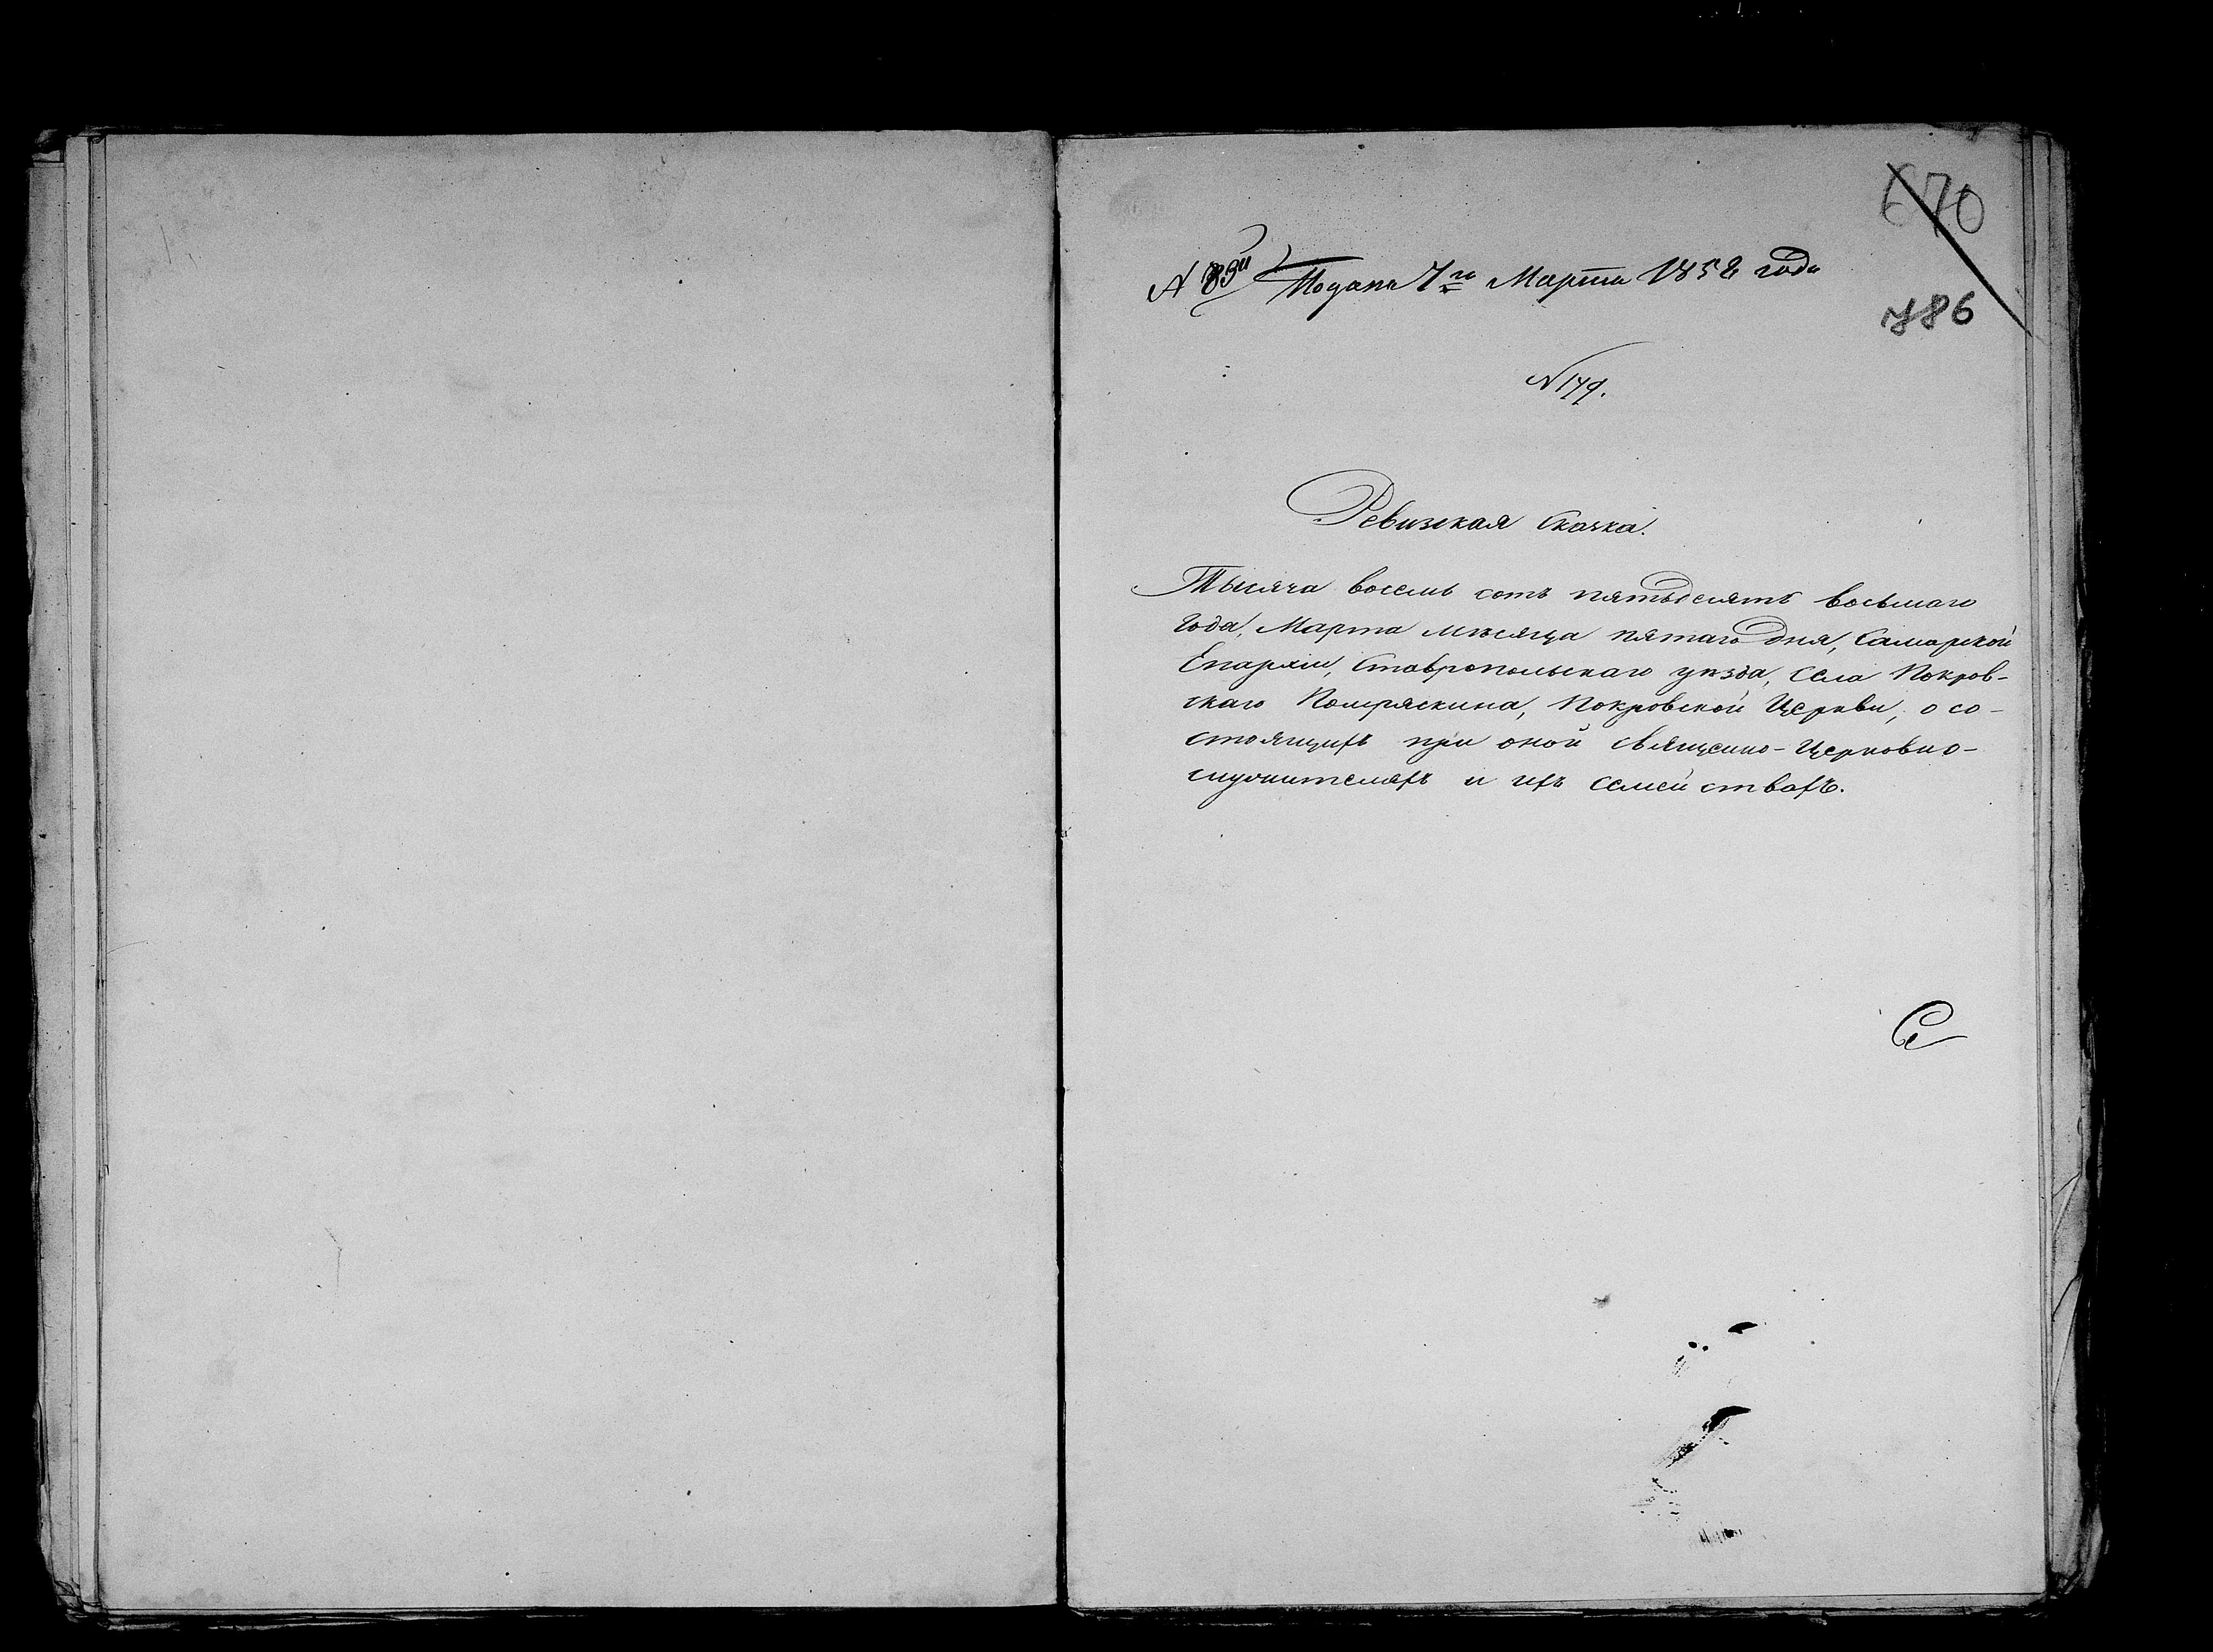 670
N 89й Подана 7го Марта 1858 года
786
N 149.
Ревизская Сказка.
Тысяча восемь сотъ пятьдесятъ восьмаго
Года, Марта мѣсяца пятаго дня, Самарской
Епархіи, Ставропольскаго уѣзда, Села Покров-
скаго Помряскина, Покровской Церкви, о со-
стоящихъ при оной священно-церковно-
служителяхъ и ихъ семействахъ.